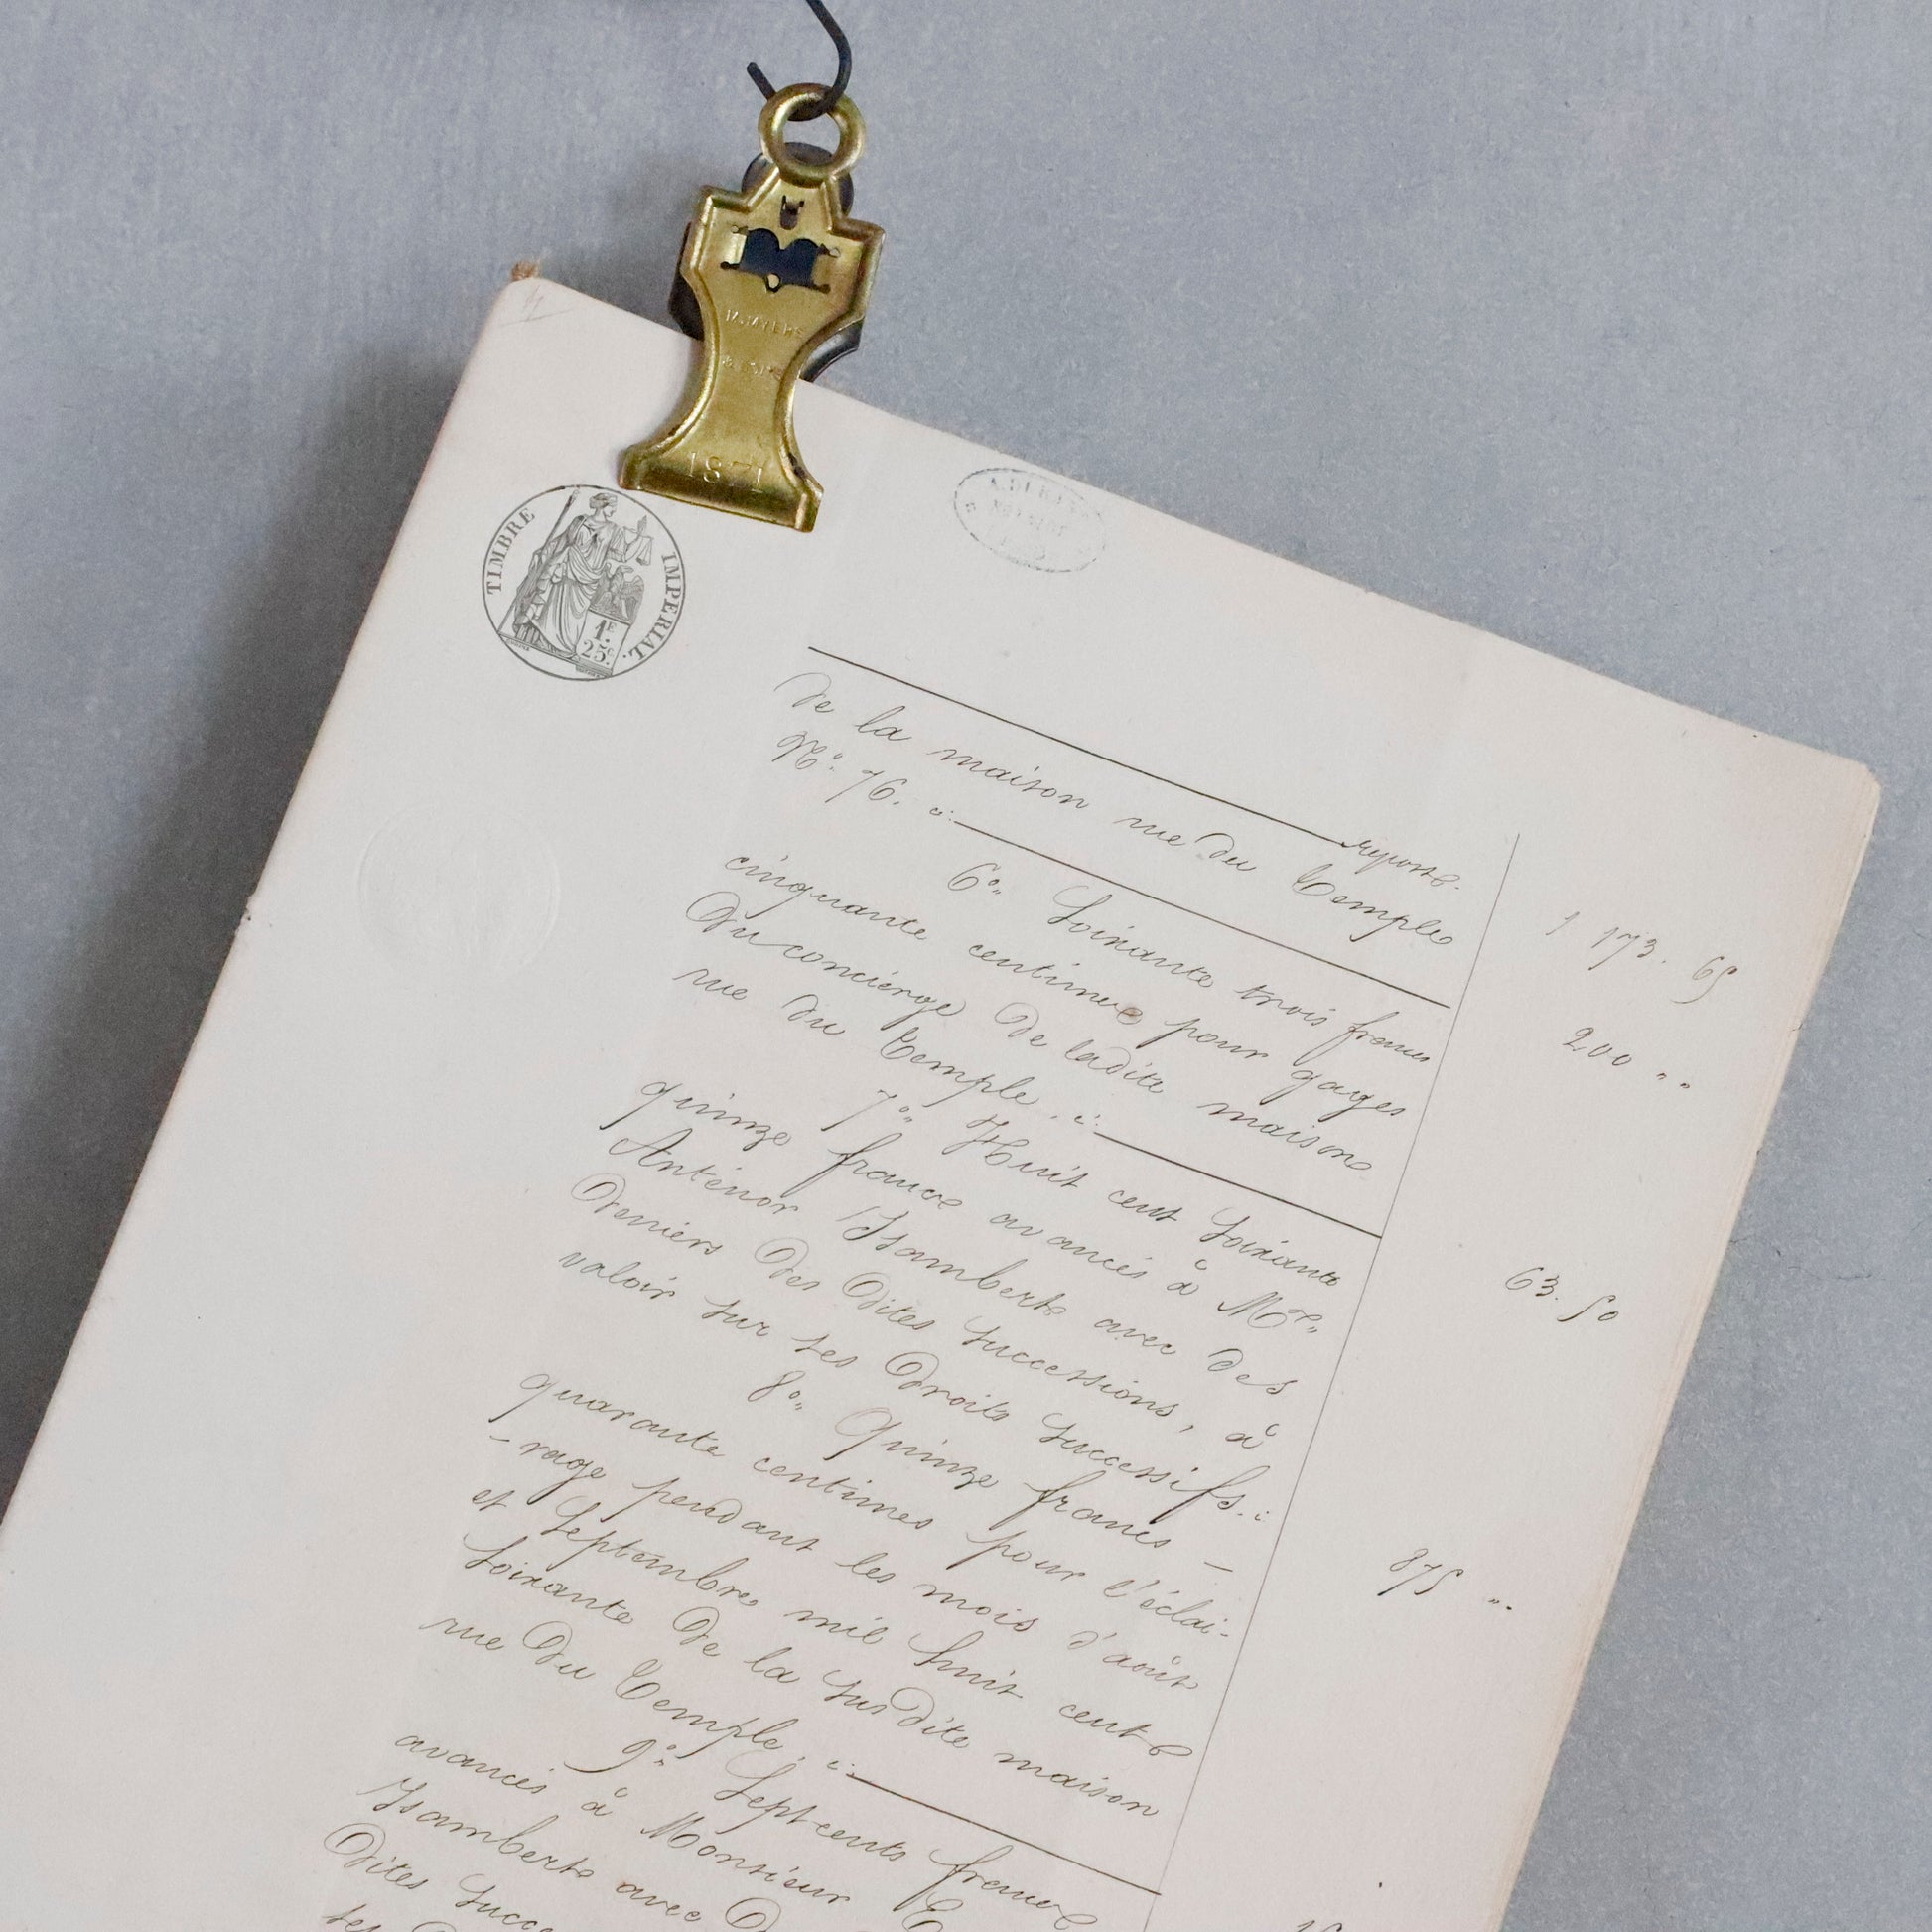 1871
TIMBRE IMPERIAL.
1F.
25c
report.
1 173. 65
de la maison rue du Temple
No. 76. ci:
200 " "
6o. Soixante trois francs
cinquante centimes pour gages
du conciérge de ladite maison
rue du Temple. ci:
63. 50
7o. Huit cent soixante
quinze francs avancés à Mr.
Anténor Isambert avec des
deniers des dites successions, à
valoir sur ses droits successifs. ci
875 "
8o. Quinze francs —
quarante centimes pour l'éclai-
-rage pendant les mois d'août
et Septembre mil huit cent
soixante de la susdite maison
rue du Temple, ci:
9o. Sept cents francs
avancés à Monsieur
Isambert avec
dites succe
ses